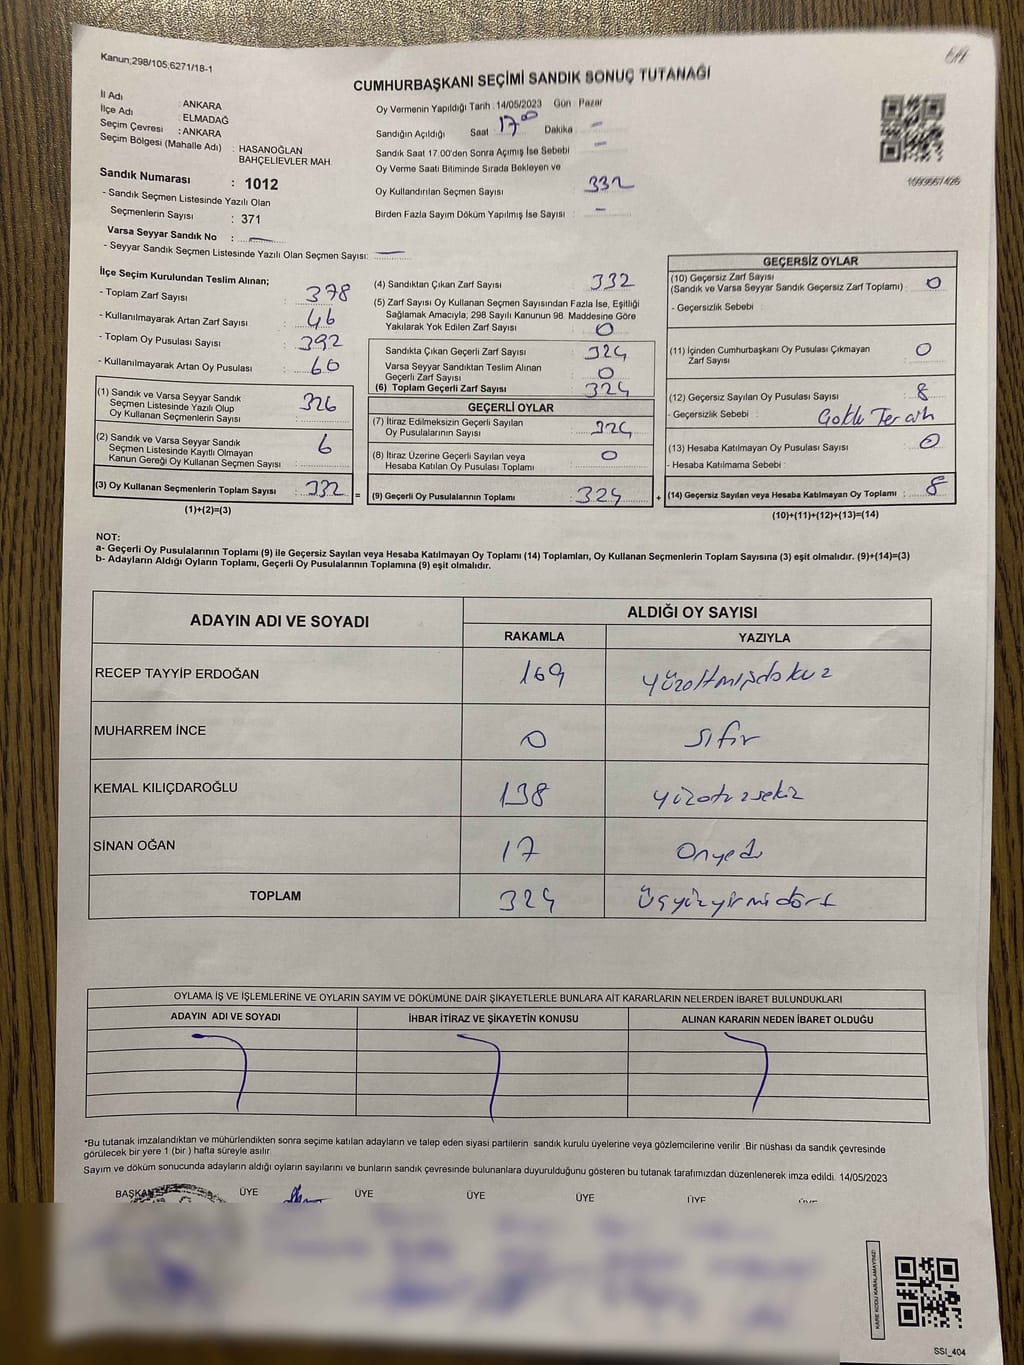 Kanun;298/105;6271/18-1
CUMHURBAŞKANI SEÇİMİ SANDIK SONUÇ TUTANAĞI
İl Adı : ANKARA
İlçe Adı : ELMADAĞ
Seçim Çevresi : ANKARA
Seçim Bölgesi (Mahalle Adı) : HASANOĞLAN
BAHÇELİEVLER MAH.
Sandık Numarası : 1012
- Sandık Seçmen Listesinde Yazılı Olan
Seçmenlerin Sayısı : 371
Varsa Seyyar Sandık No : —
- Seyyar Sandık Seçmen Listesinde Yazılı Olan Seçmen Sayısı: —
Oy Vermenin Yapıldığı Tarih : 14/05/2023 Gün Pazar
Sandığın Açıldığı Saat 17.00 Dakika —
Sandık Saat 17.00'den Sonra Açımış İse Sebebi —
Oy Verme Saati Bitiminde Sırada Bekleyen ve
Oy Kullandırılan Seçmen Sayısı 332
Birden Fazla Sayım Döküm Yapılmış İse Sayısı : —
1693667426
İlçe Seçim Kurulundan Teslim Alınan;
- Toplam Zarf Sayısı : 378
- Kullanılmayarak Artan Zarf Sayısı : 46
- Toplam Oy Pusulası Sayısı : 392
- Kullanılmayarak Artan Oy Pusulası : 60
(1) Sandık ve Varsa Seyyar Sandık
Seçmen Listesinde Yazılı Olup
Oy Kullanan Seçmenlerin Sayısı : 326
(2) Sandık ve Varsa Seyyar Sandık
Seçmen Listesinde Kayıtlı Olmayan
Kanun Gereği Oy Kullanan Seçmen Sayısı : 6
(3) Oy Kullanan Seçmenlerin Toplam Sayısı : 332 =
(1)+(2)=(3)
(4) Sandıktan Çıkan Zarf Sayısı : 332
(5) Zarf Sayısı Oy Kullanan Seçmen Sayısından Fazla İse, Eşitliği
Sağlamak Amacıyla; 298 Sayılı Kanunun 98. Maddesine Göre
Yakılarak Yok Edilen Zarf Sayısı : 0
Sandıkta Çıkan Geçerli Zarf Sayısı : 324
Varsa Seyyar Sandıktan Teslim Alınan
Geçerli Zarf Sayısı : 0
(6) Toplam Geçerli Zarf Sayısı : 324
GEÇERLİ OYLAR
(7) İtiraz Edilmeksizin Geçerli Sayılan
Oy Pusulalarının Sayısı : 324
(8) İtiraz Üzerine Geçerli Sayılan veya
Hesaba Katılan Oy Pusulası Toplamı : 0
(9) Geçerli Oy Pusulalarının Toplamı : 324 +
GEÇERSİZ OYLAR
(10) Geçersiz Zarf Sayısı
(Sandık ve Varsa Seyyar Sandık Geçersiz Zarf Toplamı) : 0
- Geçersizlik Sebebi :
(11) İçinden Cumhurbaşkanı Oy Pusulası Çıkmayan
Zarf Sayısı : 0
(12) Geçersiz Sayılan Oy Pusulası Sayısı : 8
- Geçersizlik Sebebi : Çoklu Tercih
(13) Hesaba Katılmayan Oy Pusulası Sayısı : 0
- Hesaba Katılmama Sebebi :
(14) Geçersiz Sayılan veya Hesaba Katılmayan Oy Toplamı : 8
(10)+(11)+(12)+(13)=(14)
NOT:
a- Geçerli Oy Pusulalarının Toplamı (9) ile Geçersiz Sayılan veya Hesaba Katılmayan Oy Toplamı (14) Toplamları, Oy Kullanan Seçmenlerin Toplam Sayısına (3) eşit olmalıdır. (9)+(14)=(3)
b- Adayların Aldığı Oyların Toplamı, Geçerli Oy Pusulalarının Toplamına (9) eşit olmalıdır.
ADAYIN ADI VE SOYADI ALDIĞI OY SAYISI
RAKAMLA YAZIYLA
RECEP TAYYİP ERDOĞAN 169 yüzaltmışdokuz
MUHARREM İNCE 0 sıfır
KEMAL KILIÇDAROĞLU 138 yüzotuzsekiz
SİNAN OĞAN 17 Onyedi
TOPLAM 324 üçyüzyirmidört
OYLAMA İŞ VE İŞLEMLERİNE VE OYLARIN SAYIM VE DÖKÜMÜNE DAİR ŞİKAYETLERLE BUNLARA AİT KARARLARIN NELERDEN İBARET BULUNDUKLARI
ADAYIN ADI VE SOYADI İHBAR İTİRAZ VE ŞİKAYETİN KONUSU ALINAN KARARIN NEDEN İBARET OLDUĞU
*Bu tutanak imzalandıktan ve mühürlendikten sonra seçime katılan adayların ve talep eden siyasi partilerin sandık kurulu üyelerine veya gözlemcilerine verilir. Bir nüshası da sandık çevresinde
görülecek bir yere 1 (bir) hafta süreyle asılır.
Sayım ve döküm sonucunda adayların aldığı oyların sayılarını ve bunların sandık çevresinde bulunanlara duyurulduğunu gösteren bu tutanak tarafımızdan düzenlenerek imza edildi. 14/05/2023
BAŞKAN ÜYE ÜYE ÜYE ÜYE ÜYE ÜYE
KARE KODU KARALAMAYINIZ!
SSI_404